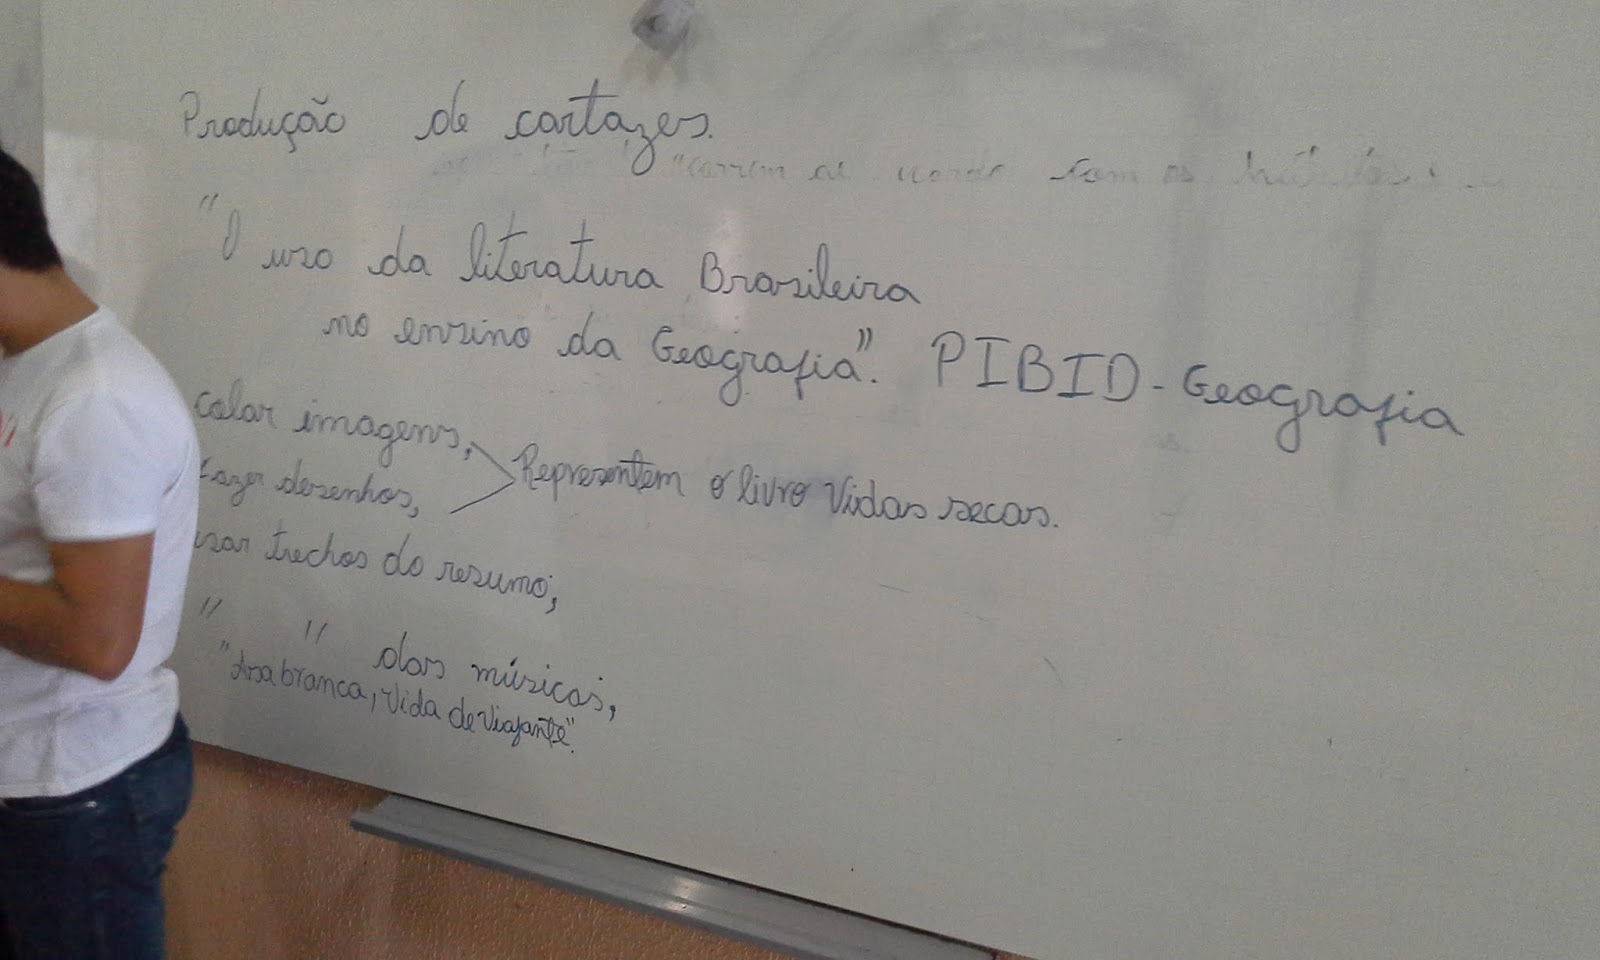 Produção de cartazes.
com os
"O uso da literatura Brasileira
no ensino da Geografia". PIBID - Geografia
colar imagens,
fazer desenhos, Representem o livro Vidas secas.
usar trechos do resumo,
" " das músicas,
"Asa branca, Vida de Viajante".